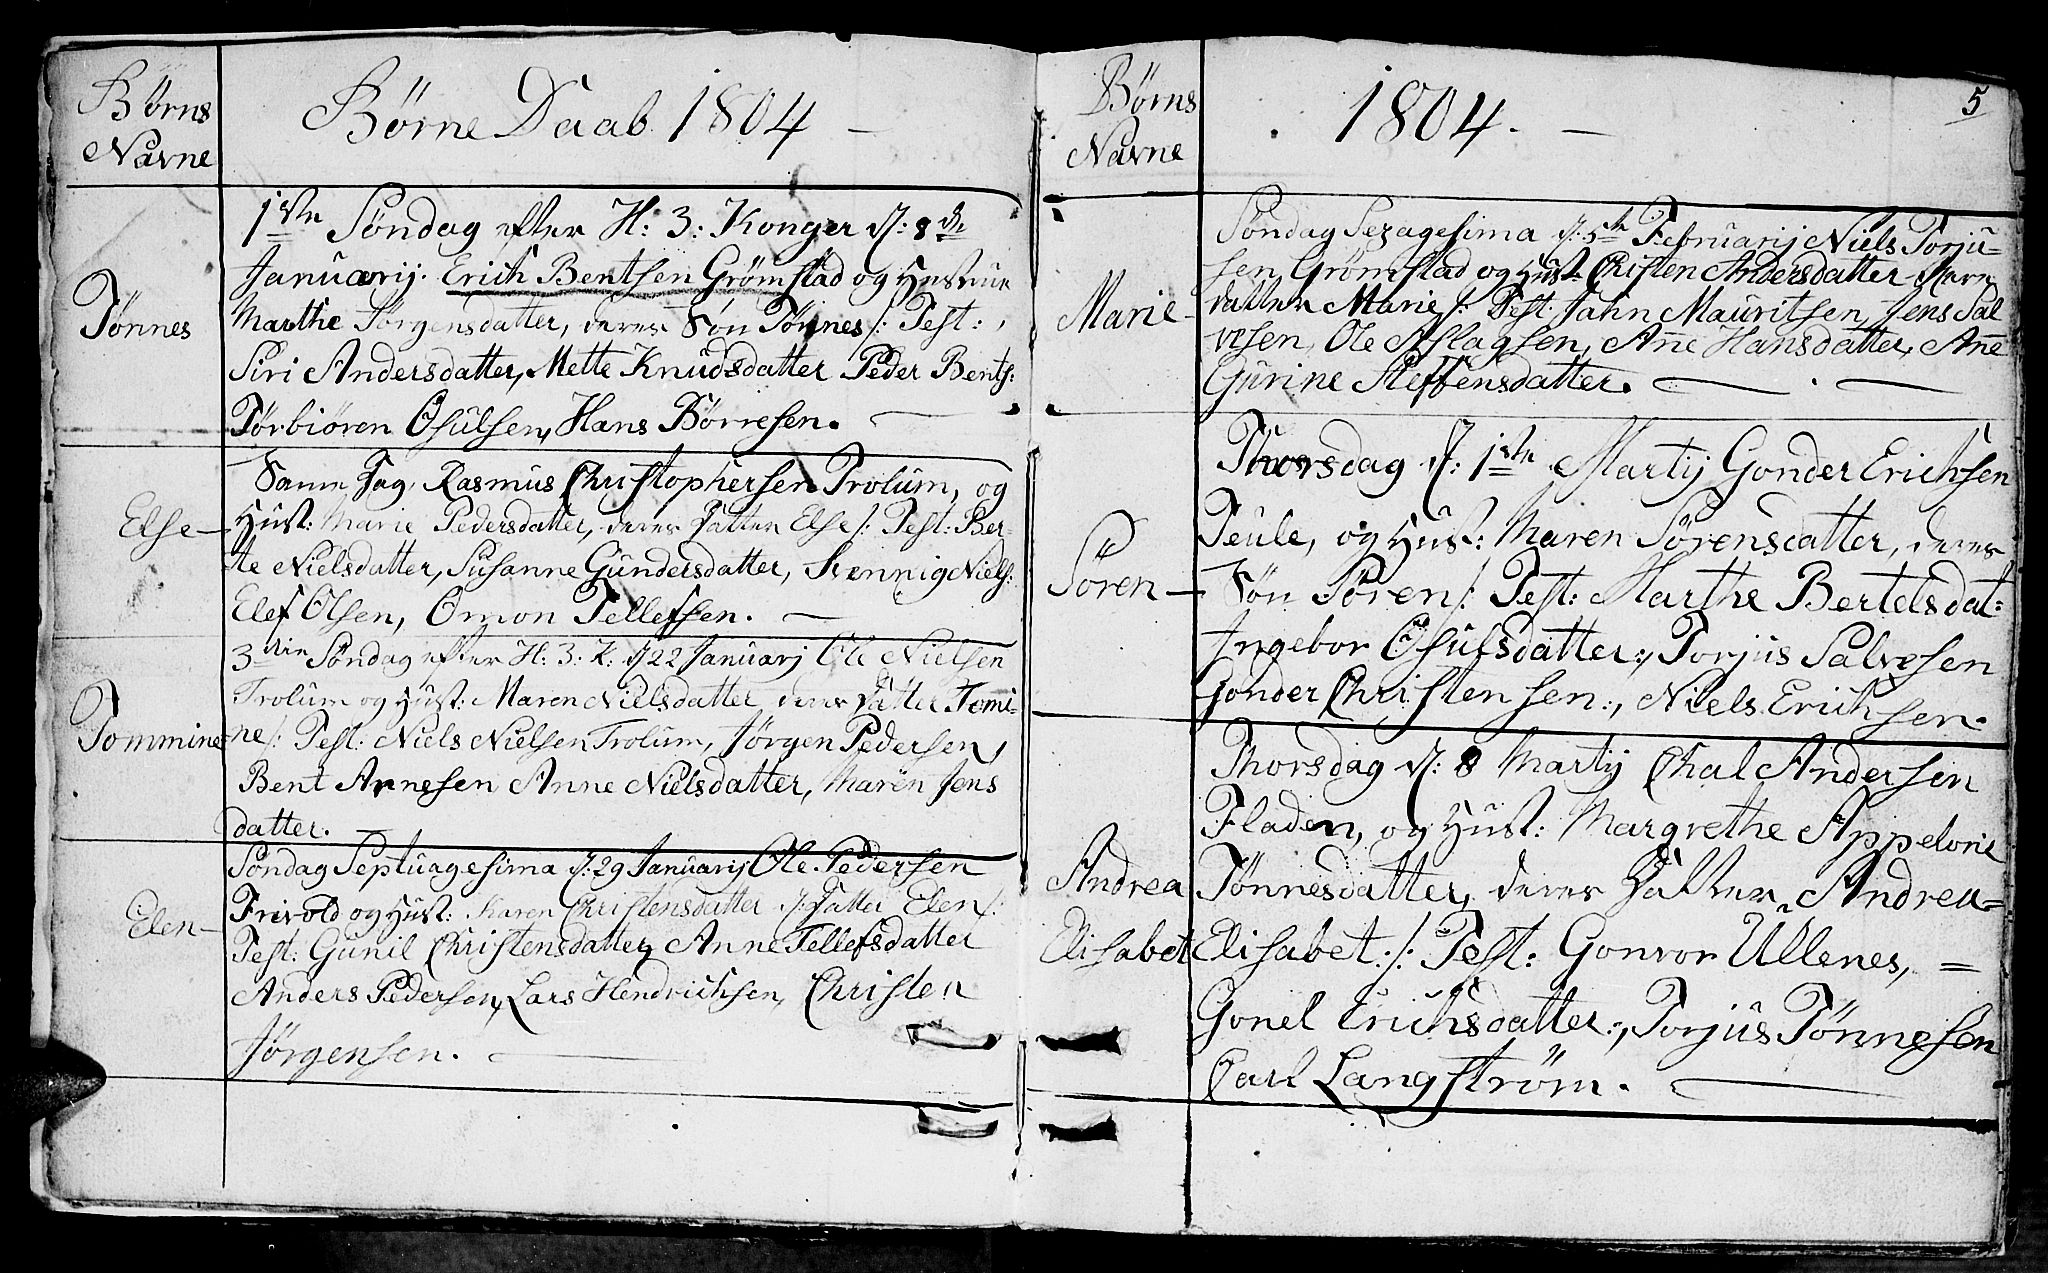 Børns
Navne
Børne Daab 1804 —
Tønnes
1ste Søndag efter H: 3: Konger d: 8de
Januarij. Erich Bentsen Grømstad og Hustrue
Marthe Jørgensdatter, deres Søn Tønnes /: Test:,
Siri Andersdatter, Mette Knudsdatter Peder Bents:
Tørbiören Osulsen, Hans Børresen. —
Else —
Samme Dag, Rasmus Christophersen Trolum, og
Hust: Marie Pedersdatter, deres Datter Else /: Test: Ber-
te Nielsdatter, Susanne Gundersdatter, Svennig Niels:
Elef Olsen, Omon Tellefsen. —
Tommine
3die Søndag efter H: 3: K: d 22 Januarj Ole Nielsen
Trolum og Hust: Maren Nielsdatter deres Datter Tomi-
ne /: Test: Niels Nielsen Trolum, Jørgen Pedersen,
Bent Arnesen Anne Nielsdatter, Maren Jens
datter. —
Elen —
Søndag Septuagesima d: 29 Januarij Ole Pedersen
Frivold og Hust: Karen Christensdatter d: Datter Elen /:
Test: Gunil Christensdatter, Anne Tellefsdatter
Anders Pedersen, Lars Hendrichsen, Christen
Jørgensen. —
Børns
Navne
1804. —
5
Marie —
Søndag Sexagesima d: 5te Februarij Niels Torju-
sen Grømstad og Hust: Christen Andersdatter
datter Marie /: Test: Jahn Mauritsen, Jens Sal
vesen, Ole Aslagsen, Añe Hansdatter, Añe
Gurine Steffensdatter. — . —
Søren —
Thorsdag d: 1ste Martij Gonder Erichsen
Teule, og Hust: Maren Sørensdatter, deres
Søn Søren /: Test: Marthe Bertelsdat:
Ingebor Osulsdatter:, Torjus Salvesen
Gonder Christensen:, Niels Erichsen.
Andrea
Elisabet
Thorsdag d: 8 Martij Chal Andersen
Fladen, og Hust: Margrethe Appeloni
Tønnesdatter, deres Datter Andrea=
Elisabet:/: Test: Gonvor Ullenes, =
Gonel Erichsdatter:, Torjus Tønnesen
Carl Langström. —